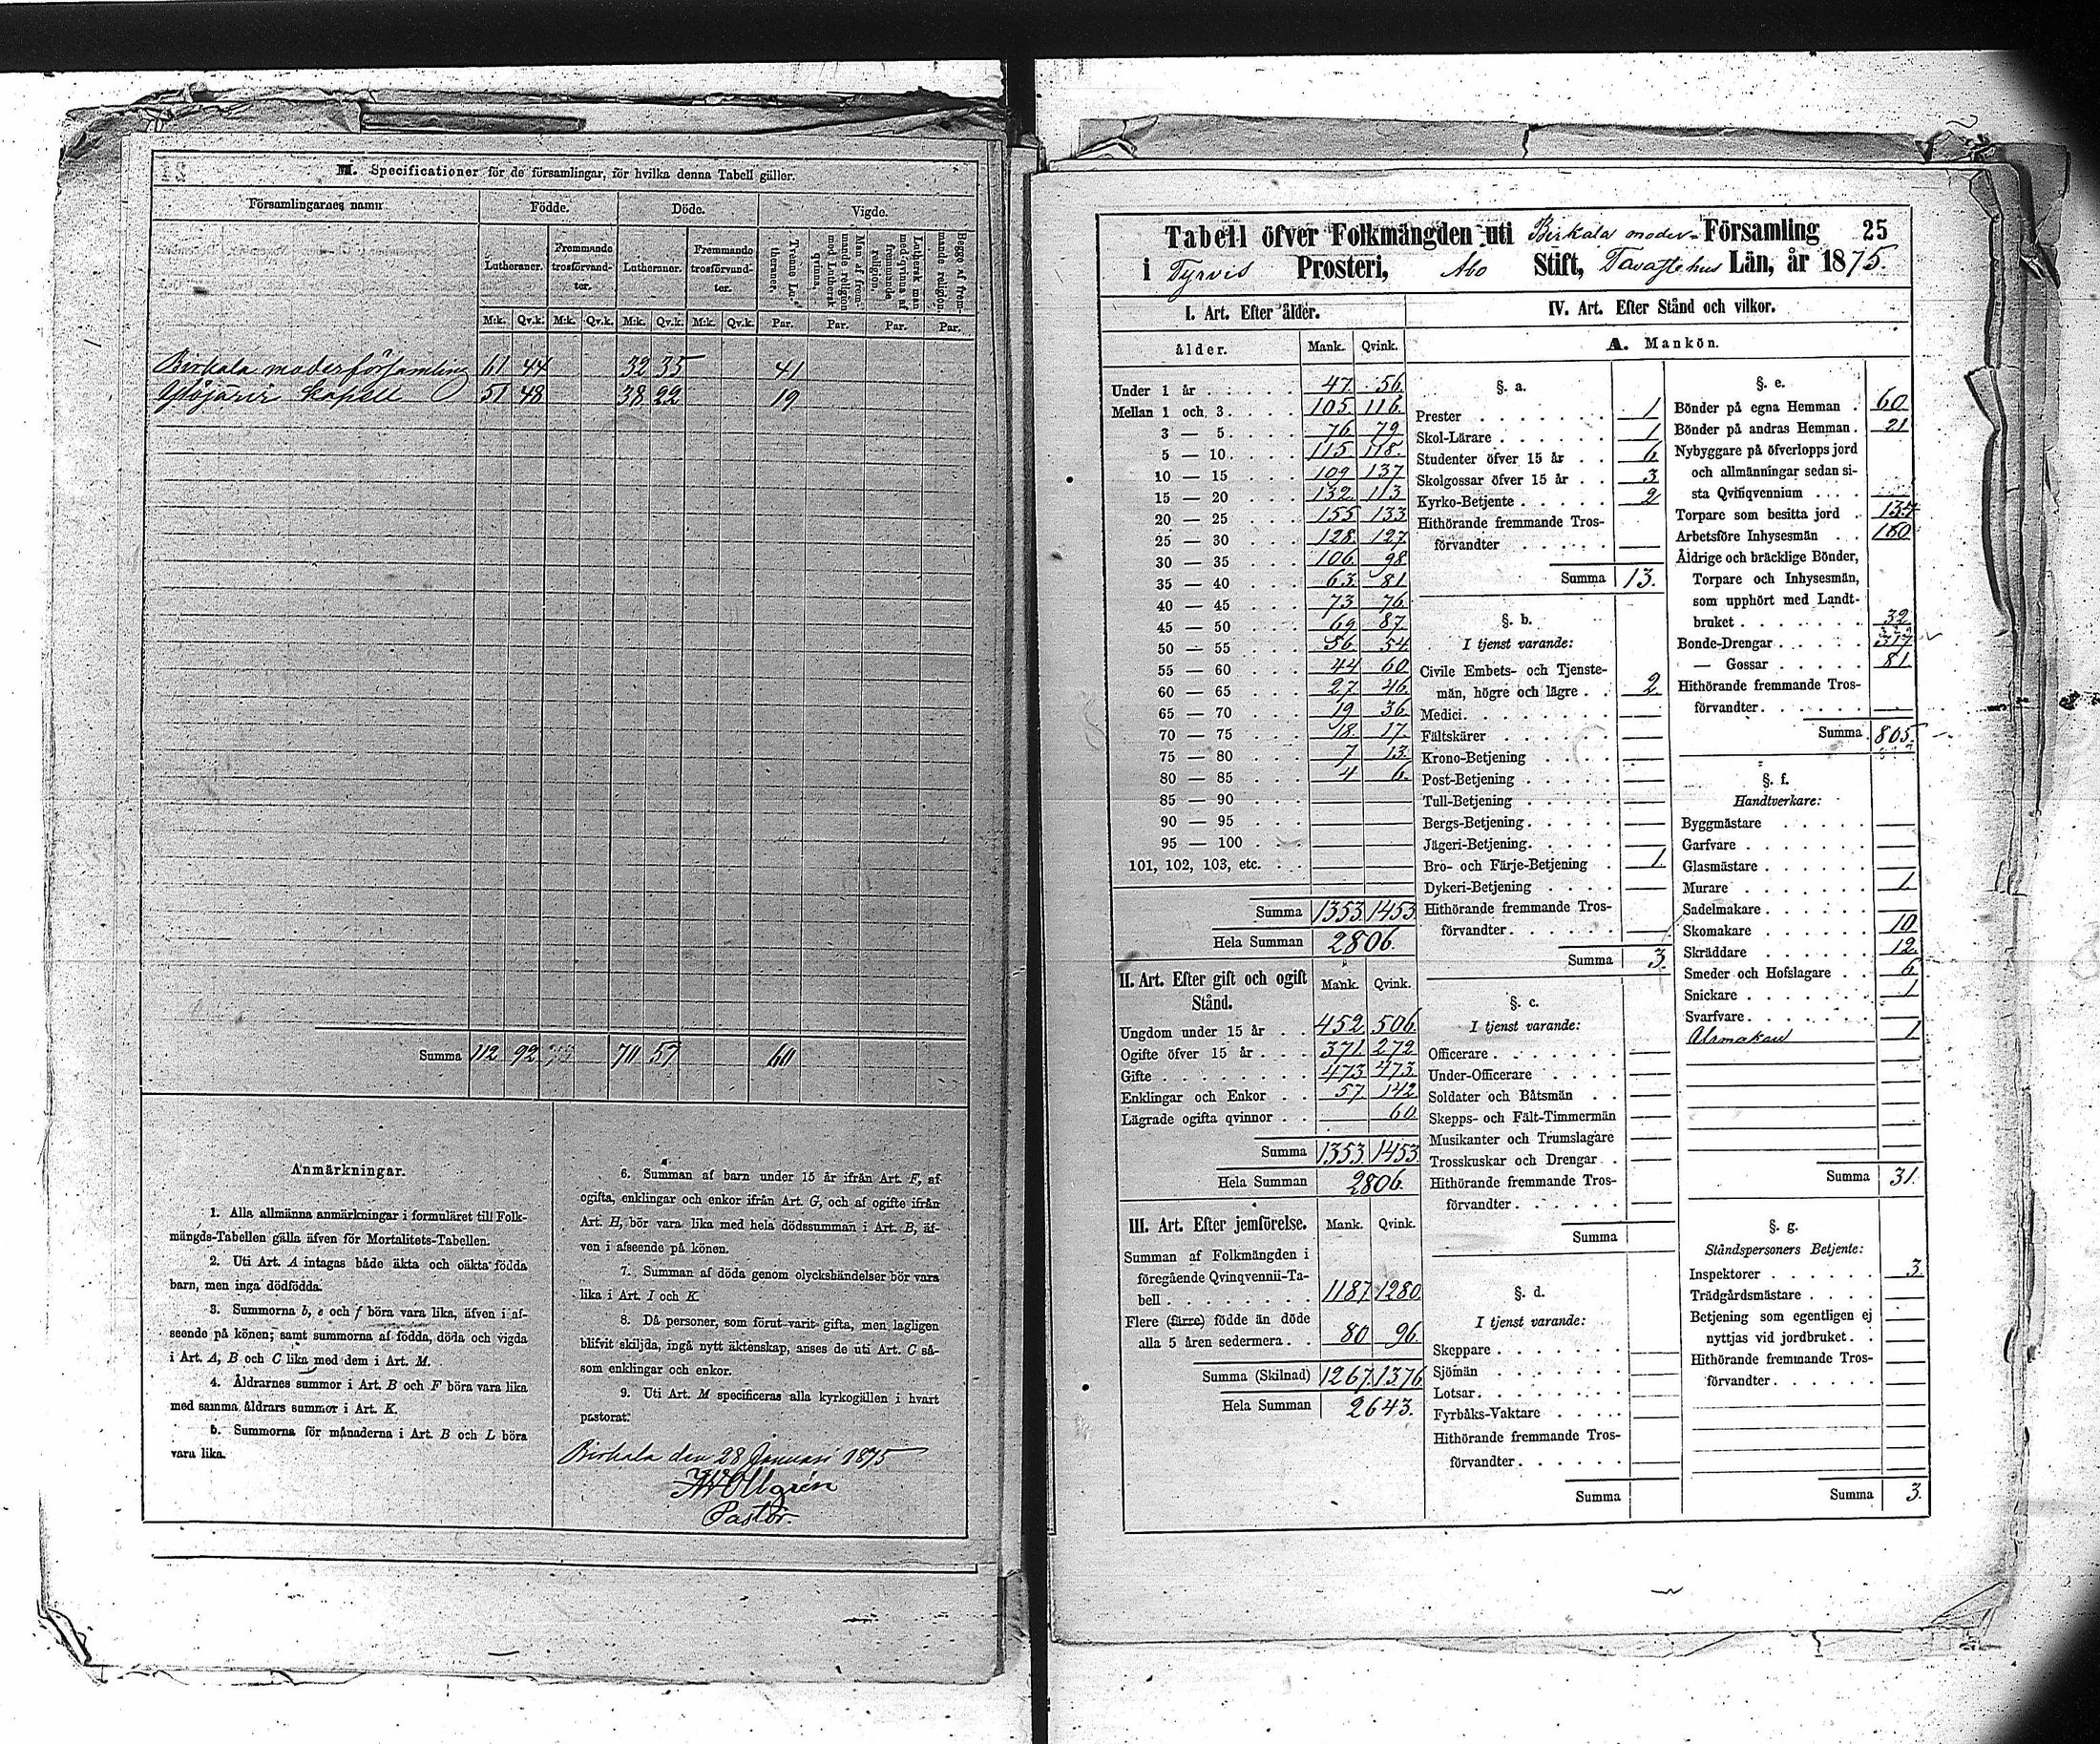 M. Specificationer för de församlingar, för hvilka denna Tabell gäller.
Församlingarnes namn
Födde.
Döde.
Vigde.
Lutheraner.
Fremmande trosförvand-ter.
Lutheraner.
Fremmande trosförvand-ter.
Tvenne Lu-theraner.
Man af frem-mande religion med Luthersk qvinna.
Luthersk man med qvinna af fremmande religion.
Begge af frem-mande religion.
M:k. Qv.k. M:k. Qv.k. M:k. Qv.k. M:k. Qv.k. Par. Par. Par. Par.
Birkala moderförsamling 61 44 32 35 41
Ylöjärvi kapell 51 48 38 22 19
Summa 112 92 70 57 60
Anmärkningar.
1. Alla allmänna anmärkningar i formuläret till Folk-
mängds-Tabellen gälla äfven för Mortalitets-Tabellen.
2. Uti Art. A intagas både äkta och oäkta födda
barn, men inga dödfödda.
3. Summorna b, e och f böra vara lika, äfven i af-
seende på könen; samt summorna af födda, döda och vigda
i Art. A, B och C lika med dem i Art. M.
4. Åldrarnes summor i Art. B och F böra vara lika
med samma åldrars summor i Art. K.
5. Summorna för månaderna i Art. B och L böra
vara lika.
6. Summan af barn under 15 år ifrån Art. F, af
ogifta, enklingar och enkor ifrån Art. G, och af ogifte ifrån
Art. H, bör vara lika med hela dödssumman i Art. B, äf-
ven i afseende på könen.
7. Summan af döda genom olyckshändelser bör vara
lika i Art. I och K.
8. Då personer, som förut varit gifta, men lagligen
blifvit skiljda, ingå nytt äktenskap, anses de uti Art. C så-
som enklingar och enkor.
9. Uti Art. M specificeras alla kyrkogällen i hvart
pastorat.
Birkala den 28 Januari 1875
Pastor.
Tabell öfver Folkmängden uti Birkala moder-Församling 25
i Tyrvis Prosteri, Abo Stift, Tavastehus Län, år 1875.
I. Art. Efter ålder.
ålder. Mank. Qvink.
Under 1 år 47 56
Mellan 1 och 3 105 116
3 — 5 76 79
5 — 10 115 118
10 — 15 109 137
15 — 20 132 113
20 — 25 155 133
25 — 30 128 127
30 — 35 106 98
35 — 40 63 81
40 — 45 73 76
45 — 50 69 87
50 — 55 56 54
55 — 60 44 60
60 — 65 27 46
65 — 70 19 36
70 — 75 18 17
75 — 80 7 13
80 — 85 4 6
85 — 90
90 — 95
95 — 100
101, 102, 103, etc.
Summa 1353 1453
Hela Summan 2806.
II. Art. Efter gift och ogift Stånd. Mank. Qvink.
Ungdom under 15 år 452 506
Ogifte öfver 15 år 371 272
Gifte 473 473
Enklingar och Enkor 57 142
Lägrade ogifta qvinnor 60
Summa 1353 1453
Hela Summan 2806.
III. Art. Efter jemförelse. Mank. Qvink.
Summan af Folkmängden i
föregående Qvinqvennii-Ta-
bell 1187 1280
Flere (färre) födde än döde
alla 5 åren sedermera 80 96
Summa (Skilnad) 1267 1376
Hela Summan 2643.
IV. Art. Efter Stånd och vilkor.
A. Mankön.
§. a.
Prester 1
Skol-Lärare 1
Studenter öfver 15 år 6
Skolgossar öfver 15 år 3
Kyrko-Betjente 2
Hithörande fremmande Tros-
förvandter
Summa 13.
§. b.
I tjenst varande:
Civile Embets- och Tjenste-
män, högre och lägre 2
Medici
Fältskärer
Krono-Betjening
Post-Betjening
Tull-Betjening
Bergs-Betjening
Jägeri-Betjening
Bro- och Färje-Betjening 1
Dykeri-Betjening
Hithörande fremmande Tros-
förvandter
Summa 3.
§. c.
I tjenst varande:
Officerare
Under-Officerare
Soldater och Båtsmän
Skepps- och Fält-Timmermän
Musikanter och Trumslagare
Trosskuskar och Drengar
Hithörande fremmande Tros-
förvandter
Summa
§. d.
I tjenst varande:
Skeppare
Sjömän
Lotsar
Fyrbåks-Vaktare
Hithörande fremmande Tros-
förvandter
Summa
§. e.
Bönder på egna Hemman 60
Bönder på andras Hemman 21
Nybyggare på öfverlopps jord
och allmänningar sedan si-
sta Qvinqvennium
Torpare som besitta jord 134
Arbetsföre Inhysesmän 160
Åldrige och bräcklige Bönder,
Torpare och Inhysesmän,
som upphört med Landt-
bruket 32
Bonde-Drengar 317
— Gossar 81
Hithörande fremmande Tros-
förvandter
Summa 805.
§. f.
Handtverkare:
Byggmästare
Garfvare
Glasmästare
Murare 1
Sadelmakare
Skomakare 10
Skräddare 12
Smeder och Hofslagare 6
Snickare 1
Svarfvare
Urmakare 1
Summa 31.
§. g.
Ståndspersoners Betjente:
Inspektorer 3
Trädgårdsmästare
Betjening som egentligen ej
nyttjas vid jordbruket
Hithörande fremmande Tros-
förvandter
Summa 3.